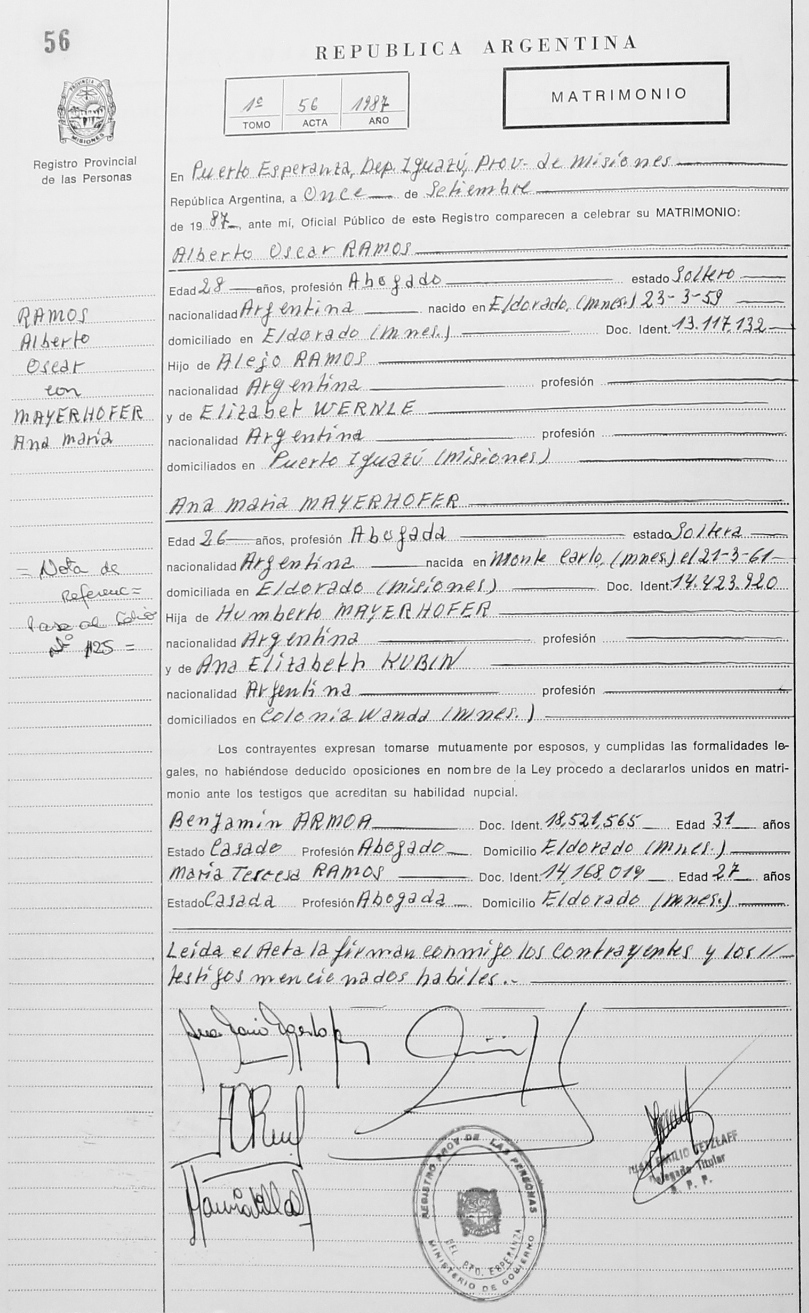 56
REPUBLICA ARGENTINA
PROVINCIA DE MISIONES
Registro Provincial
de las Personas
1º 56 1987
TOMO ACTA AÑO
MATRIMONIO
En Puerto Esperanza, Dep. Iguazú, Prov. de Misiones
República Argentina, a Once de Setiembre
de 1987, ante mí, Oficial Público de este Registro comparecen a celebrar su MATRIMONIO:
Alberto Oscar RAMOS
Edad 28 años, profesión Abogado estado Soltero
nacionalidad Argentina nacido en Eldorado, (mnes.) 23-3-59
domiciliado en Eldorado (mnes.) Doc. Ident. 13.117.132
Hijo de Alejo RAMOS
nacionalidad Argentina profesión
y de Elizabet WERNLE
nacionalidad Argentina profesión
domiciliados en Puerto Iguazú (misiones)
RAMOS
Alberto
Oscar
con
MAYERHOFER
Ana Maria
Ana Maria MAYERHOFER
Edad 26 años, profesión Abogada estado Soltera
nacionalidad Argentina nacida en Monte Carlo, (mnes) el 21-3-61
domiciliada en Eldorado (misiones) Doc. Ident. 14.423.920
Hija de Humberto MAYERHOFER
nacionalidad Argentina profesión
y de Ana Elizabeth KUBIN
nacionalidad Argentina profesión
domiciliados en Colonia Wanda (mnes.)
= Nota de
Referenc=
Pase al folio
Nº 125 =
Los contrayentes expresan tomarse mutuamente por esposos, y cumplidas las formalidades le-
gales, no habiéndose deducido oposiciones en nombre de la Ley procedo a declararlos unidos en matri-
monio ante los testigos que acreditan su habilidad nupcial.
Benjamín ARMOA Doc. Ident. 18,521,565 Edad 31 años
Estado Casado Profesión Abogado Domicilio Eldorado (mnes.)
María Teresa RAMOS Doc. Ident. 14,168,019 Edad 27 años
Estado Casada Profesión Abogada Domicilio Eldorado (mnes.)
Leida el Acta la firman conmigo los Contrayentes y los //
testigos mencionados habiles.-
REGISTRO PROV DE LAS PERSONAS
DEL. PTO. ESPERANZA
MINISTERIO DE GOBIERNO
EMILIO TETZLAFF
Delegado Titular
R. P. P.